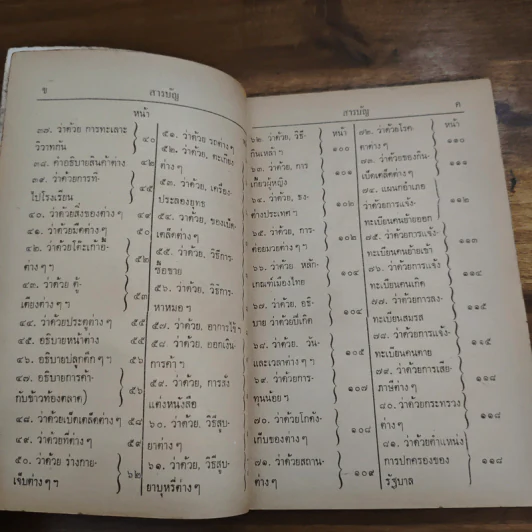 ข
สารบัญ
หน้า
๓๗. ว่าด้วย การทะเลาะ
วิวาทกัน
๔๐
๓๘. คำอธิบายสินค้าต่าง
๔๒
๓๙. ว่าด้วยการที่
ไปโรงเรียน
๔๕
๔๐. ว่าด้วยสิ่งของต่าง ๆ
๔๑. ว่าด้วยมีดต่าง ๆ
๔๙
๔๒. ว่าด้วยโต๊ะเก้าอี้
ต่าง ๆ ฯ
๕๒
๔๓. ว่าด้วย ตู้
เตียงต่าง ๆ ฯ
๕๓
๔๔. ว่าด้วยประตูต่าง ๆ
๕๕
๔๕. อธิบายหน้าต่าง
๕๕
๔๖. อธิบายปลูกตึก ๆ ฯ
๕๖
๔๗. อธิบายการค้า
กับข้าวท้องตลาด)
๔๘. ว่าด้วยเบ็ดเตล็ดต่าง ๆ
๕๘
๔๙. ว่าด้วยที่ต่าง ๆ
๖๐
๕๐. ว่าด้วย ร่างกาย-
เจ็บต่าง ๆ ฯ
๖๒
๕๑. ว่าด้วย รถต่าง ๆ
๕๒. ว่าด้วย, ตะเกียง
ต่าง ๆ
๕๓. ว่าด้วย, เครื่อง-
ประลองยุทธ
๕๔. ว่าด้วย, ของเบ็ด-
เตล็ดต่าง ๆ
๕๕. ว่าด้วย, วิธีการ-
ซื้อขาย
๕๖. ว่าด้วย, วิธีการ-
หาหมอ ฯ
๕๗. ว่าด้วย, อาการไข้ ฯ
๕๘. ว่าด้วย, ออกเงิน-
การค้า ฯ
๕๙. ว่าด้วย, การสั่ง
แต่งหนังสือ
๖๐. ว่าด้วย, วิธีสูบ-
ยาต่าง ๆ
๖๑. ว่าด้วย, วิธีสูบ-
ยาบุหรี่ต่าง ๆ
สารบัญ
ค
หน้า
๖๒. ว่าด้วย, วิธี-
กินเหล้า ฯ
๑๐๐
๖๓. ว่าด้วย, การ
เกี้ยวผู้หญิง
๑๐๑
๖๔. ว่าด้วย, ธง-
ต่างประเทศ ฯ
๑๐๒
๖๕. ว่าด้วย, การ-
ต่อยมวยต่าง ๆ ฯ
๑๐๒
๖๖. ว่าด้วย หลัก-
เกณฑ์เมืองไทย
๑๐๔
๖๗. ว่าด้วย, อธิ-
บาย ว่าด้วยบิเกิต
๑๐๔
๖๘. ว่าด้วย, วัน-
และเวลาต่าง ๆ ฯ
๑๐๕
๖๙. ว่าด้วยการ-
หุ้นน้อย ฯ
๑๐๗
๗๐. ว่าด้วยโกดัง-
เก็บของต่าง ๆ
๑๐๘
๗๑. ว่าด้วยสถาน-
ต่าง ๆ
๑๐๙
หน้า
๗๒. ว่าด้วยโรค
ตาต่าง ๆ
๑๑๐
๗๓. ว่าด้วยของกิน-
เบ็ดเตล็ดต่าง ๆ
๑๑๑
๗๔. แผนกอำเภอ
ว่าด้วยการแจ้ง-
ทะเบียนคนย้ายออก
๑๑๒
๗๕. ว่าด้วยการแจ้ง-
ทะเบียนคนย้ายเข้า
๑๑๓
๗๖. ว่าด้วยการแจ้ง
ทะเบียนคนเกิด
๑๑๔
๗๗. ว่าด้วยการลง-
ทะเบียนสมรส
๑๑๕
๗๘. ว่าด้วยการแจ้ง-
ทะเบียนคนตาย
๗๙. ว่าด้วยการเสีย-
ภาษีต่าง ๆ
๑๑๘
๘๐. ว่าด้วยกระทรวง
ต่าง ๆ
๑๑๘
๘๑. ว่าด้วยตำแหน่ง
การปกครองของ
รัฐบาล
๑๑๘